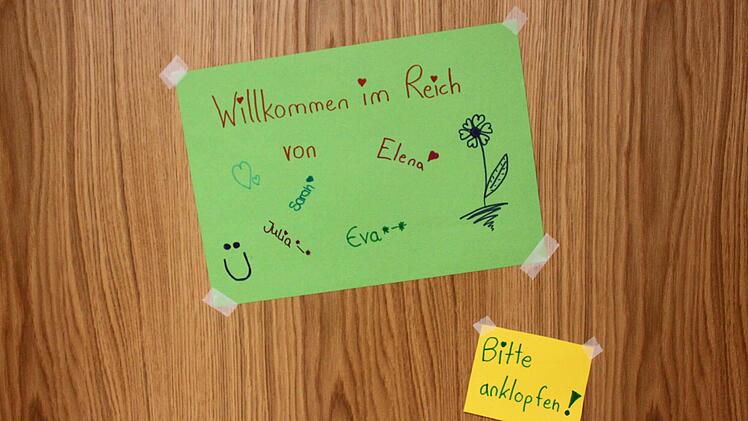 Willkommen im Reich
von
Elena
Sarah
Julia
Eva
Bitte
anklopfen!